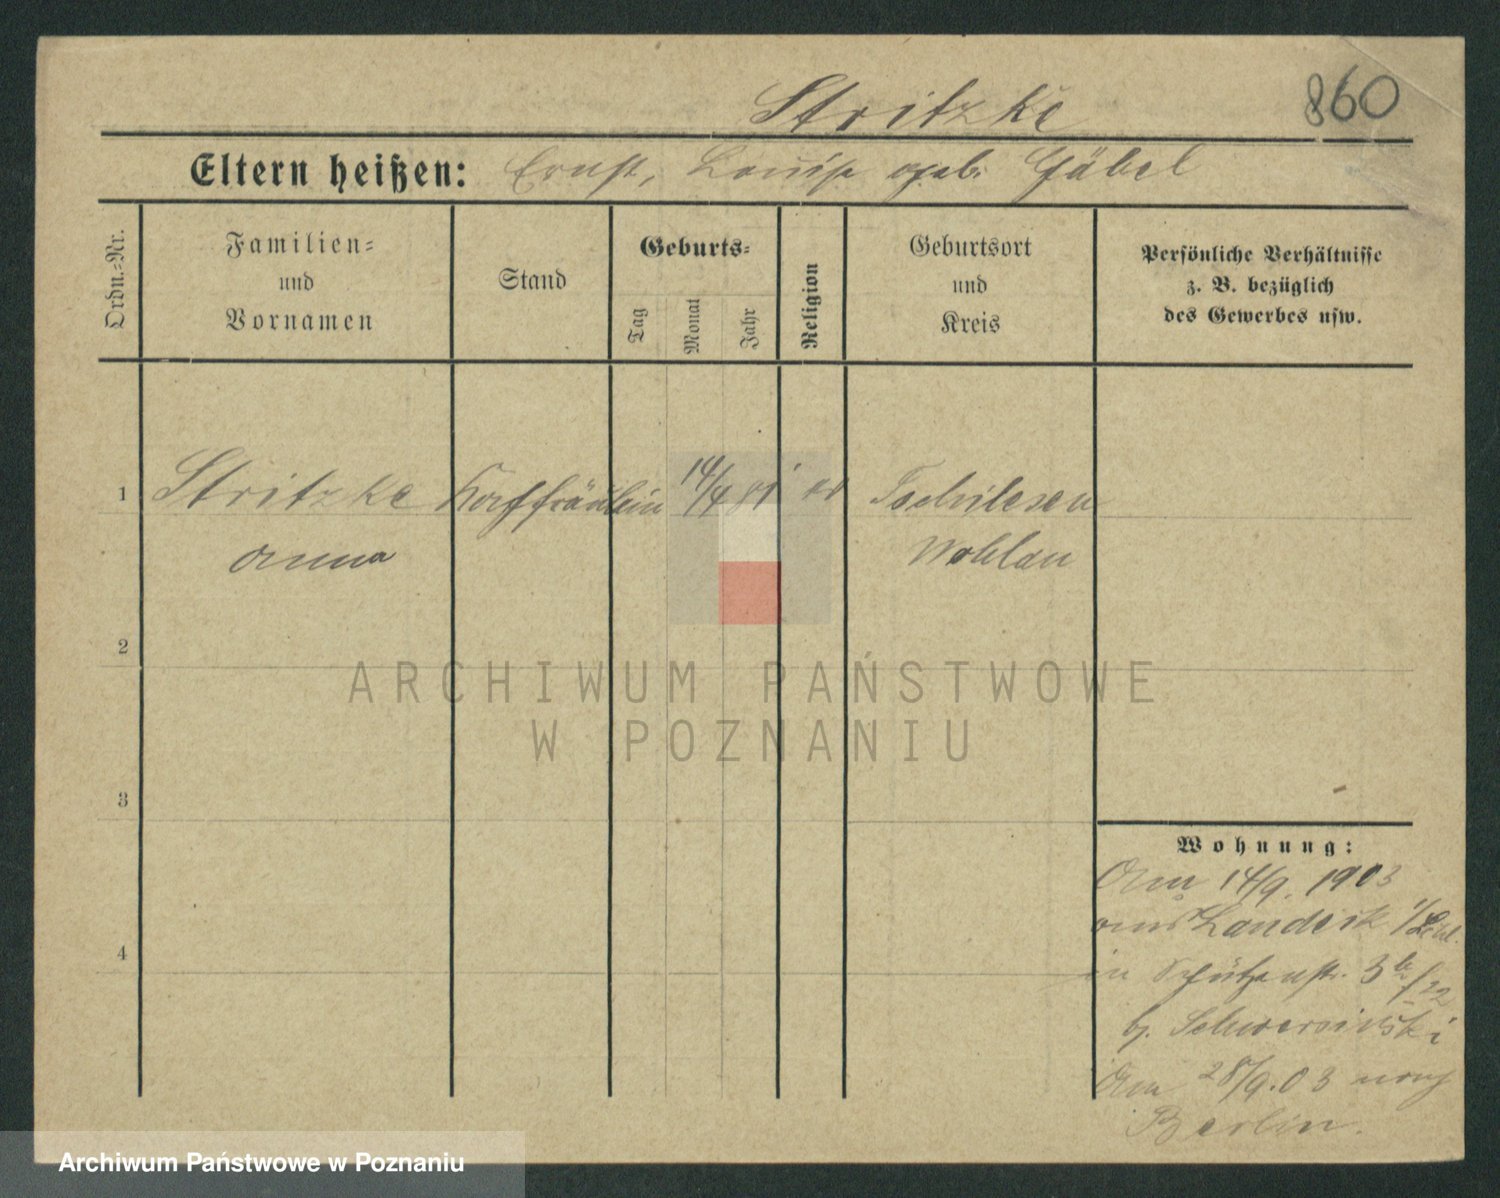 Stritzke
860
Eltern heißen: Ernst, Louise geb. Gäbel
Ordn.=Nr.
Familien=
und
Vornamen
Stand
Geburts=
Tag
Monat
Jahr
Religion
Geburtsort
und
Kreis
Persönliche Verhältnisse
z. B. bezüglich
des Gewerbes usw.
1
Stritzke
Anna
14/4 81
Tschilesen
Wohlau
2
3
4
Wohnung:
Am 14/9. 1903
aus Landeck i/Schl.
in Schützenstr.
b. Schwersinski
Am 28/9.03 nach
Berlin.
ARCHIWUM PAŃSTWOWE
W POZNANIU
Archiwum Państwowe w Poznaniu